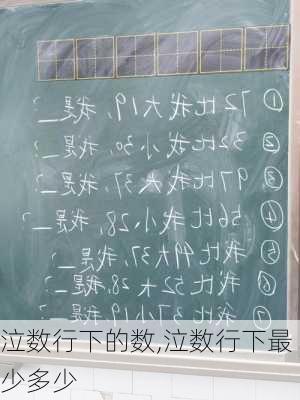 ① 72比我大19,我是__?
② 32比我小30,我是__?
③ 97比我大37,我是__?
④ 56比我小28,我是__?
⑤ 我比49大37,我是__?
⑥ 我比52大28,我是__?
⑦ 我比37小19
泣数行下的数,泣数行下最
少多少